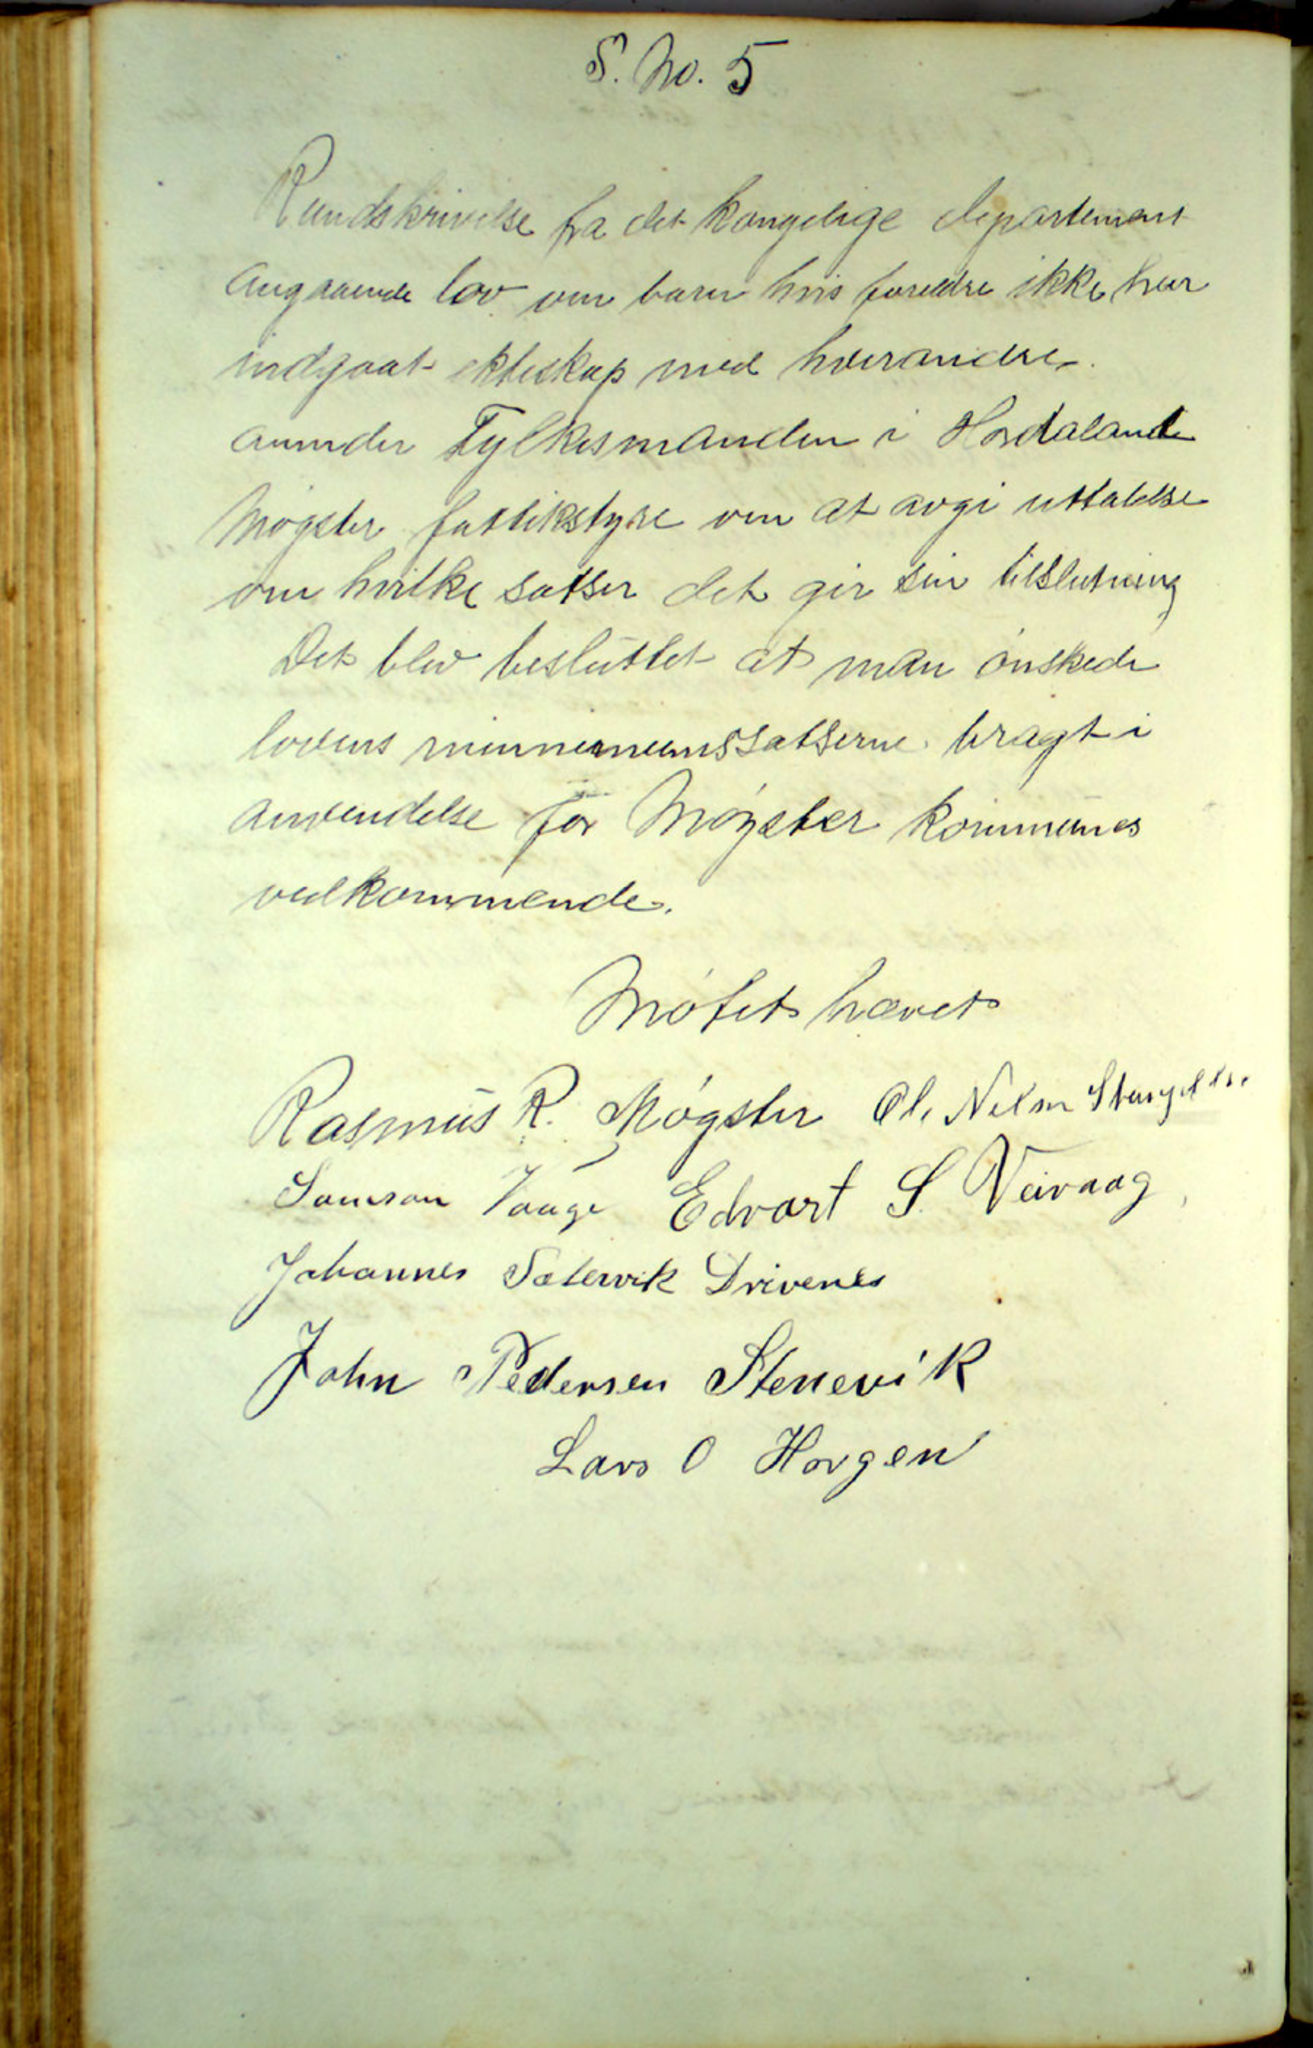 S. No. 5
Rundskrivelse fra det kongelige departement
angaaende lov om barn hvis foreldre ikke har
indgaat ekteskap med hverandre.
anmoder Fylkesmanden i Hordaland
Møgster fattikstyre om at avgi uttalelse
om hvilke satser det gir sin tilslutning
Det blev besluttet at man ønskede
lovens minnimumssatserne bragt i
anvendelse for Møgster kommunes
vedkommende.
Møtet hævet
Rasmus R. Møgster Ol. Nelsn
Samson Vaage Edvart S. Veivaag
Johannes Sætervik Drivenes
John Pedersen Stenevik
Lars O Horgen